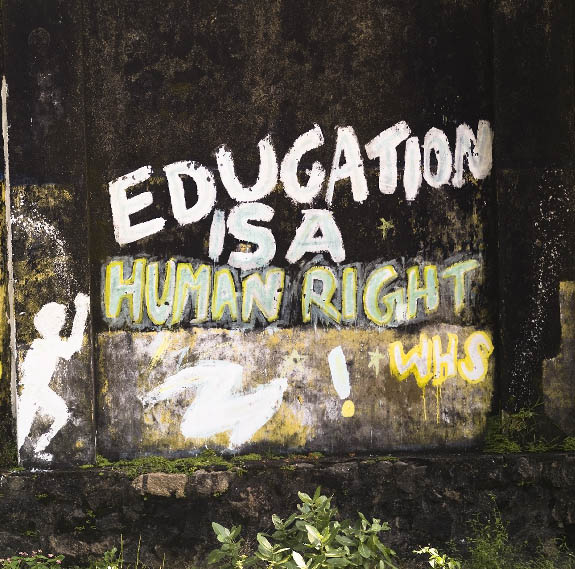 EDUCATION
IS A
HUMAN RIGHT
! WHS